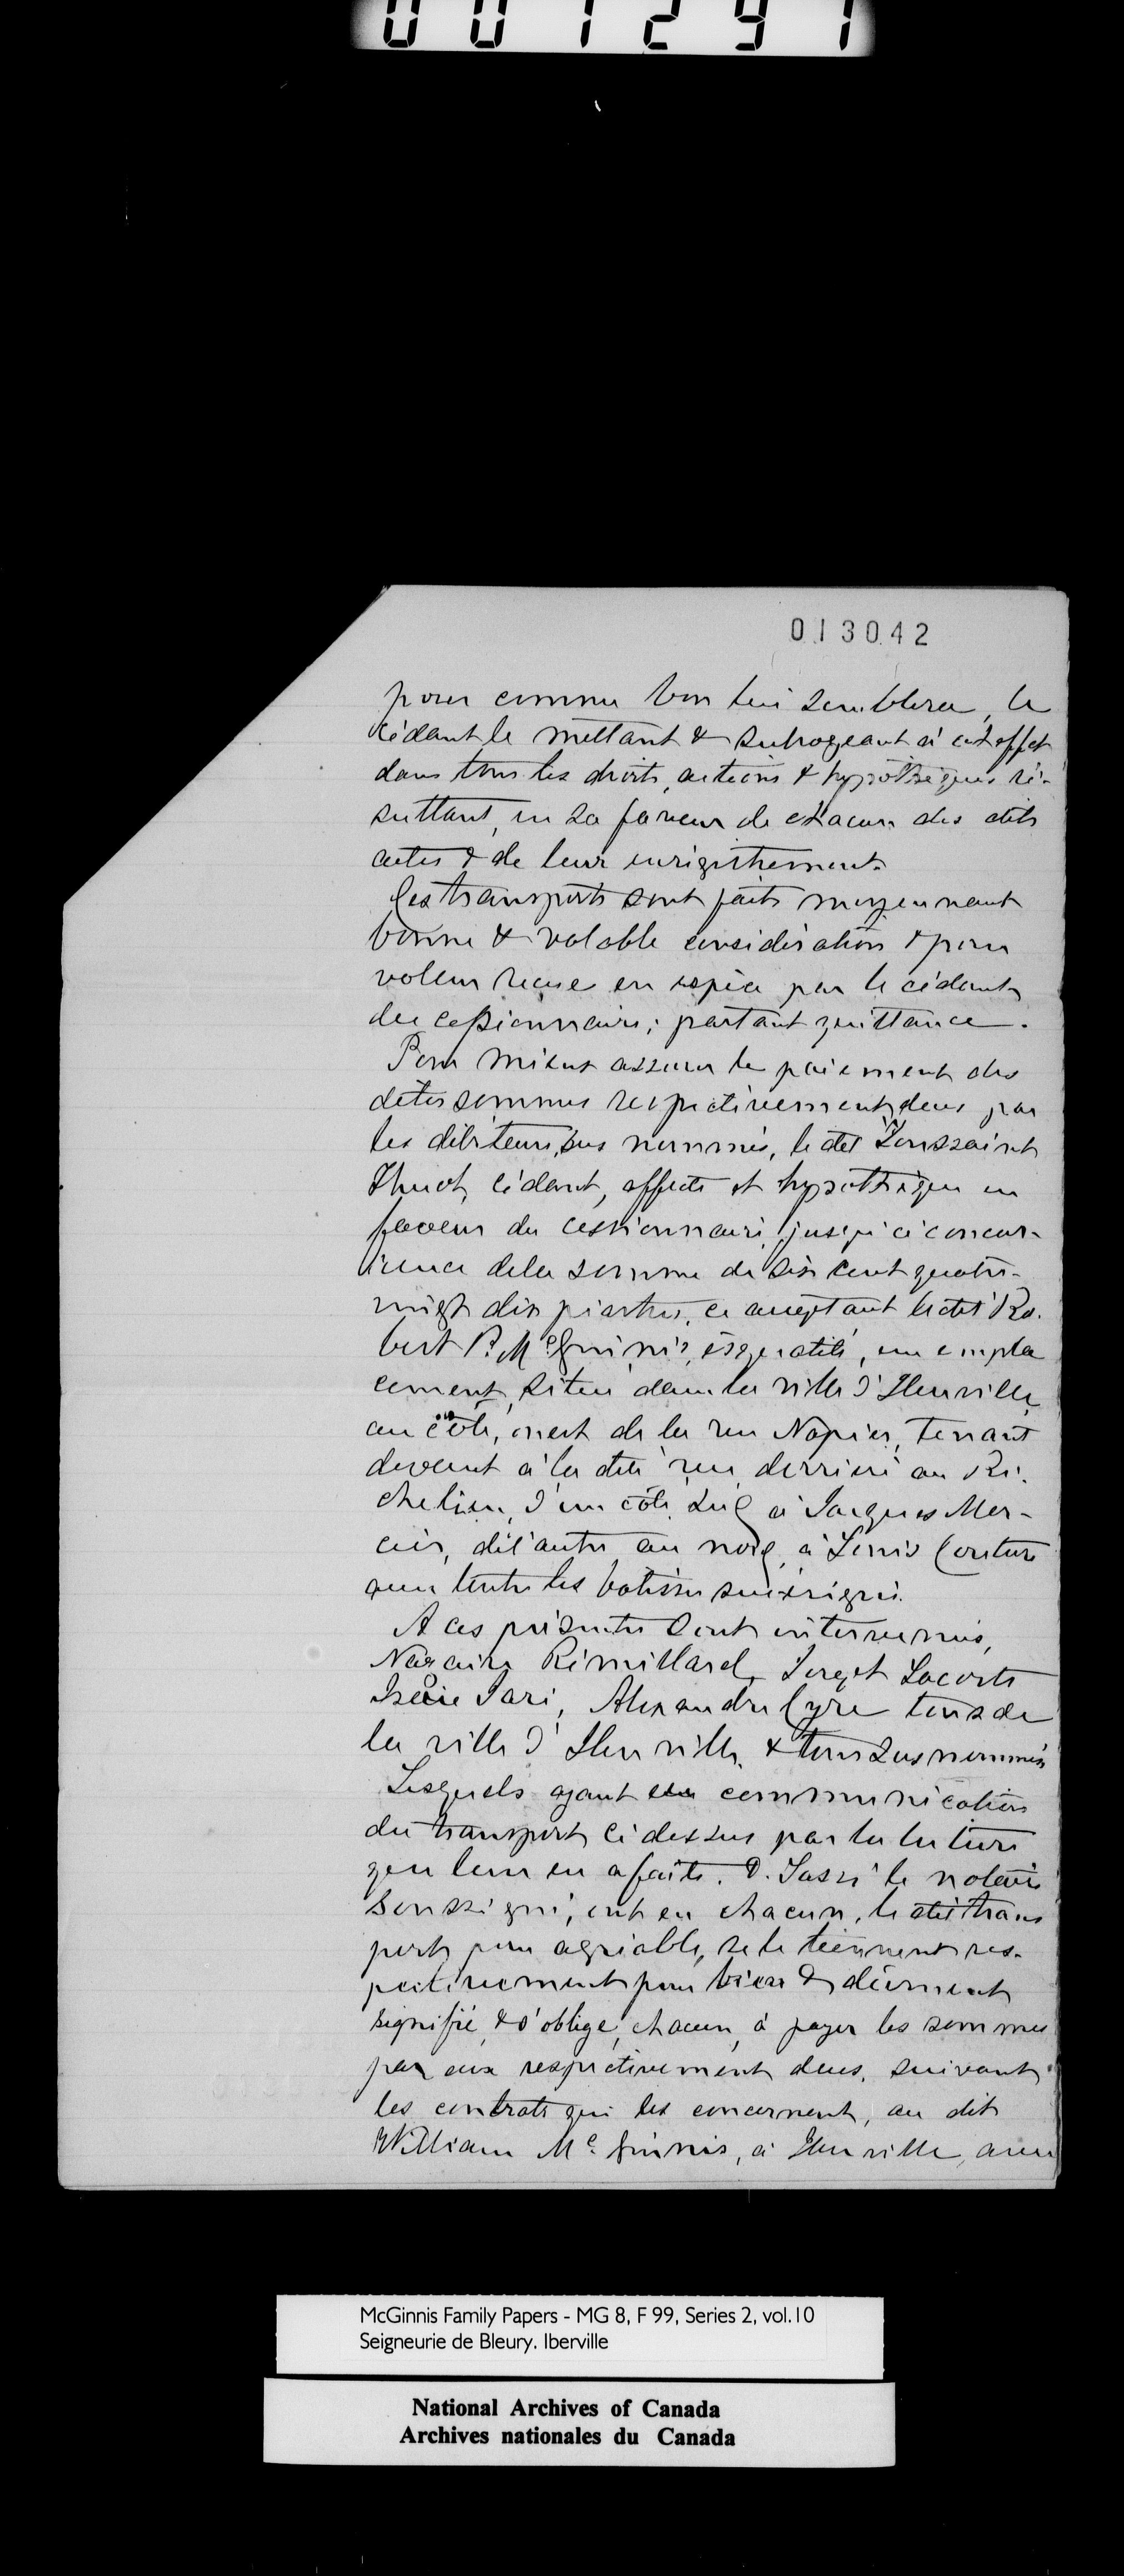 001291
013042
poser comme bon lui semblera, le
cédant le mettant & subrogeant à cet effet
dans tous les droits, actions & hypothèques ré-
sultant, en sa faveur de chacun des dits
actes & de leur enrigistrement.
Ces transports sont faits moyennant
bonne & valable considération & pour
valeur reçue en espèce par le cédant
du cessionnaire; partant quittance.
Pour mieux assurer le paiement des
dites sommes respectivement dues par
les débiteurs sus nommés, le dit Toussaint
Thuot, cédant, affecte et hypothèque en
faveur du cessionnaire, jusqu'à concur-
rence de la somme de six cent quatre-
vingt dix piastres, ce acceptant le dit Ro-
bert B. McGinnis, èsqualité, un empla
cement, situé dans la ville d'Iberville
au côté, ouest de la rue Napier, tenant
devant à la dite rue, derrière au Ri-
chelieu, d'un côté sud à Jacques Mer-
cier, de l'autre au nord, à Louis Couture
avec toutes les batisses sus érigées.
A ces présentes sont intervenus,
Nazaire Rémillard, Joseph Lacoste
Isaïe Dari, Alexandre Cyre tous de
la ville d'Iberville, & tous sus nommés
Lesquels ayant eu communication
du transport ci dessus par la lecture
que leur en a faite. D. Tassé le notaire
soussigné, ont eu chacun, le dit trans
port, pour agréable, se le tiennent res-
pectivement pour bien & dûment
signifié & s'oblige, chacun, à payer les sommes
par eux respectivement dues, suivant
les contrats qui les concernent, au dit
William McGinnis, à Iberville, avec
McGinnis Family Papers - MG 8, F 99, Series 2, vol.10
Seigneurie de Bleury. Iberville
National Archives of Canada
Archives nationales du Canada